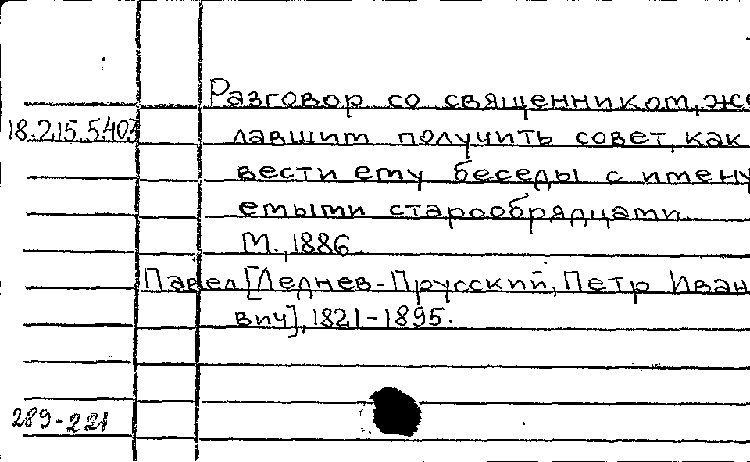 Разговор со священником, же
18.215.5.403
лавшим получить совет, как
вести ему беседы с имену
емыми старообрядцами.
М., 1886.
Павел [Леднев-Прусский, Петр Иван
вич], 1821-1895.
289-221